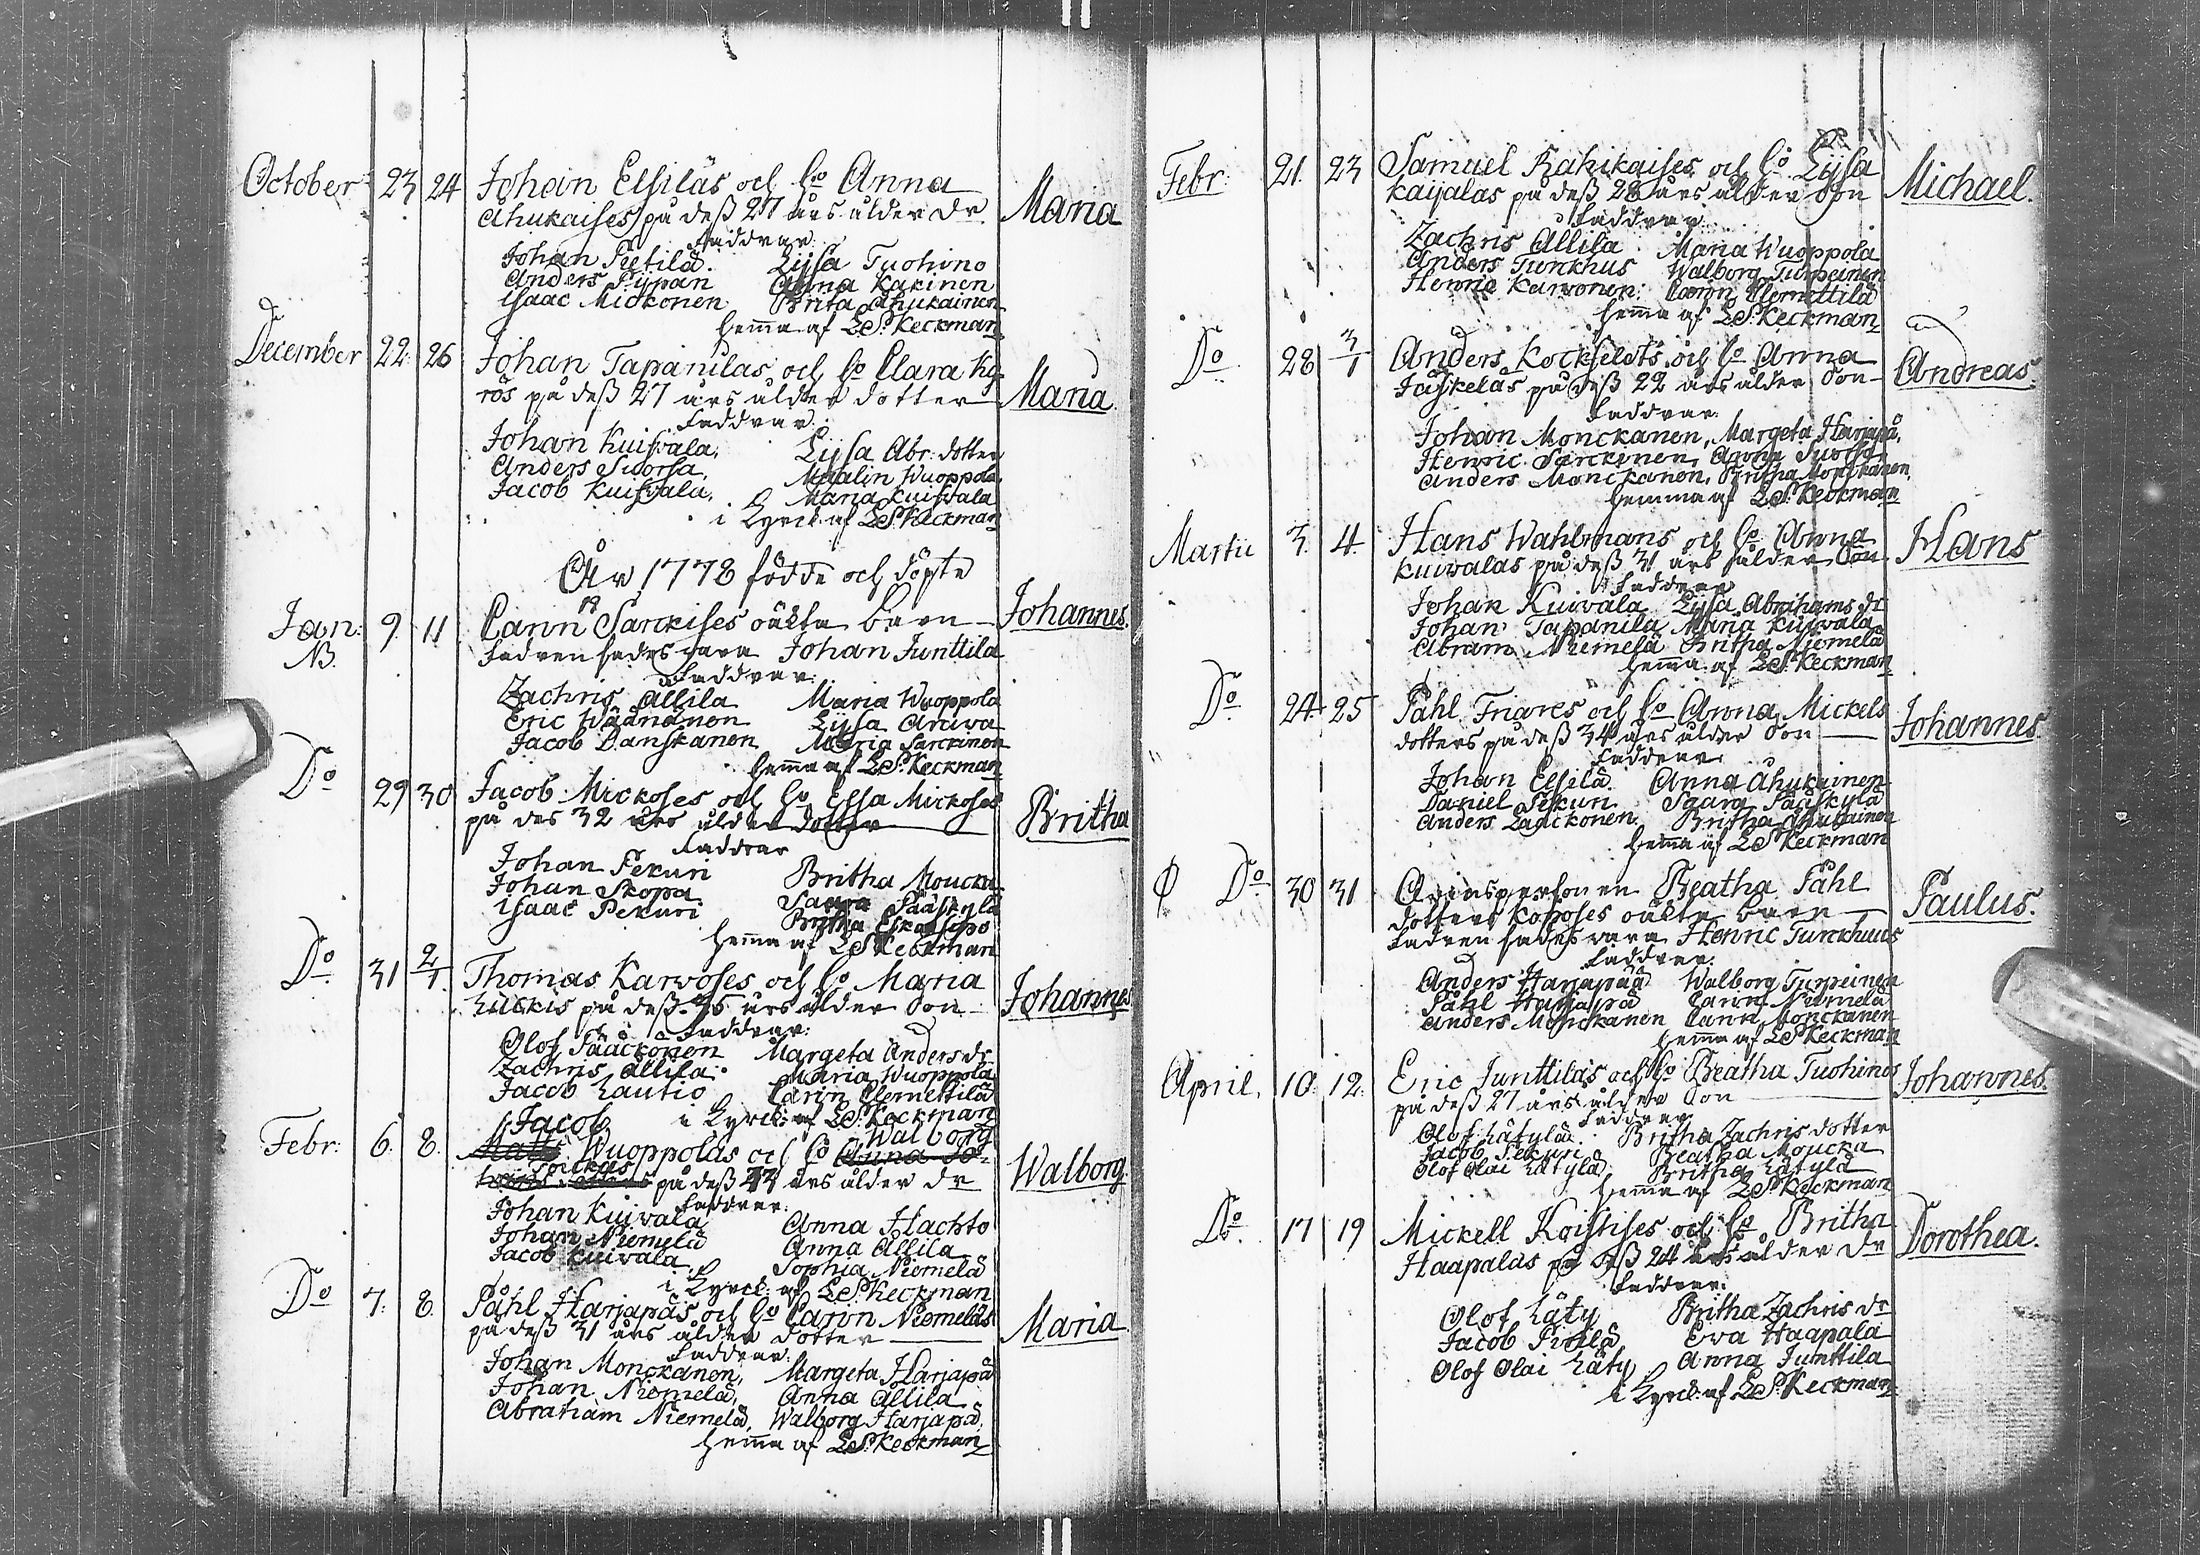 October 23 24 Johan Elsiläs och ho Anna
Ahukaises på dess 27 års ålder dr. Maria
faddrar:
Johan Peetilä. Lijsa Tuohino
Anders Pijpari Anna Kakinen
Isaac Mickonen Brita Ahukainen
hema af LS: Keckman
December 22. 26 Johan Tapanilas och ho Clara
rös på dess 27 års ålder dotter Maria
faddrar:
Johan Kuivala, Lijsa Abr. dotter
Anders Suorsa, Malin Wuoppola
Jacob Kuivala, Maria Kuivala
i Kyrck: af LS: Keckman
År 1778 födde och döpte
Jan: 9. 11 Carin Sarckises oäkta barn Johannes.
NB. fadren sades vara Johan Junttila
faddrar:
Zachris Allila Maria Wuoppola
Eric Wäänänen Lijsa
Jacob Danskanen Maria Sarckinen
hema af LS: Keckman
Do 29 30 Jacob Mickoses och ho Elsa Mickoses
på des 32 års ålder dotter Britha
faddrar
Johan Pekuri Britha Moucka
Johan Skopa Saara Pääskylä
Isaac Pekuri Britha
hema af LS Keckman
Do 31 2/1. Thomas Karvoses och ho Maria
Luckis på dess 35 års ålder son Johannes
faddrar:
Olof Pääckönen Margeta Anders dr
Zachris Allila Maria Wuoppola
Jacob Lautio Carin Clemettilä
i Kyrck: af LS: Keckman
Jacob Walborg
Febr: 6. 8. Matts Wuoppolas och ho Anna Jo-
på dess 43 års ålder dr Walborg
faddrar:
Johan Kuivala Anna Hachto
Johan Niemelä Anna Allila
Jacob Kuivala Sophia Niemelä
i Kyrck: af LS: Keckman
Do 7. 8. Påhl Harjapäs och ho Carin Niemeläs
på dess 31 års ålder dotter Maria
faddrar:
Johan Monckanen, Margeta Harjapä
Johan Niemelä, Anna Allila
Abraham Niemelä, Walborg Harjapä.
hema af LS: Keckman
Febr: 21. 23 Samuel Rahikaises och ho Lijsa
Kaijalas på dess 28 års ålder son Michael.
faddrar:
Zachris Allila Maria Wuoppola
Anders Turckhus Walborg Turpeinen
Henric Karvonen: Carin Clemettilä
hema af LS: Keckman
Do 28 3/1 Anders Kockfeldts och ho Anna
Jäskeläs på dess 22 års ålder son Andreas.
faddrar:
Johan Monckanen, Margeta Harjapä,
Henric Sarckinen, Anna Suorsa
Anders Monckanen, Britha Monckanen,
hemma af LS: Keckman
Martii 3. 4. Hans Wahlmans och ho Anna
Kuivalas på dess 31 års ålder son Hans
faddrar
Johan Kuivala Lijsa Abrahams dr
Johan Tapanila Maria Kuivala
Abram Niemelä Britha Niemelä
hema af LS: Keckman
Do 24 25 Påhl Friares och ho Anna Mickels
dotters på dess 34 års ålder son Johannes.
faddrar
Johan Elsilä Anna Ahukainen
Daniel Pekuri Saara Pääskylä
Anders Laackonen, Britha Ahukainen
hema af LS Keckman
Φ Do 30 31 Qvinspersonen Beatha Påhl
dotters Koposes oäkta barn Paulus.
fadren sades vara Henric Turckhuus
faddrar:
Anders Harjapää Walborg Turpeinen
Påhl Harjapä Carin Niemelä
Anders Monckanen Carin Monckanen
hema af LS Keckman
April. 10. 12. Eric Junttilas och ho Beatha Tuohinos
på dess 27 års ålder son Johannes.
faddrar
Olof Lätylä Britha Zachris dotter
Jacob Pekuri Beatha Moucka
Olof Olai Lätylä Britha Lätylä
hema af LS: Keckman
Do. 17 19 Mickell Koistises och ho Britha
Haapalas på dess 24 års ålder dr Dorothea.
faddrar:
Olof Läty Britha Zachris dr
Jacob Eva Haapala
Olof Olai Läty Anna Junttila
i Kyrck: af LS: Keckman